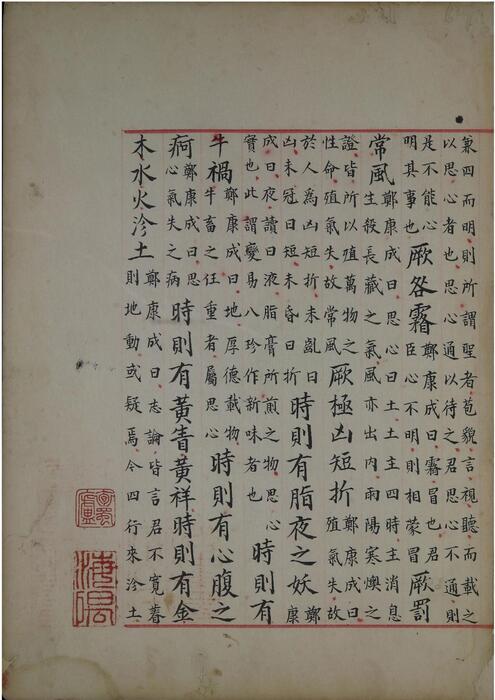 兼四而明則所謂聖者苞貌言視聽而載之
以思心者也思心通以待之君思心不通則
是不能心
明其事也
厥咎霿
鄭康成曰霿冒也君
臣心不明則相蒙冒也
厥罰
常風
鄭康成曰思心曰土土主四時主消息
生殺長藏之氣風亦出內雨陽寒燠之
證皆所以殖萬物之
性命殖氣失故常風
厥極凶短折
鄭康成曰
殖氣失故
於人爲凶短折未齓曰
凶未冠曰短未昏曰折
時則有脂夜之妖
鄭
康
成曰夜讀曰液脂膏所煎之物思心
實也此謂變易八珍作新味者也
時則有
牛禍
鄭康成曰地厚德載物
牛畜之任重者屬思心
時則有心腹之
痾
鄭康成曰思
心氣失之病
時則有黃眚黃祥時則有金
木水火沴土
鄭康成曰志論皆言君不寬
則地動或疑焉今四行來沴土